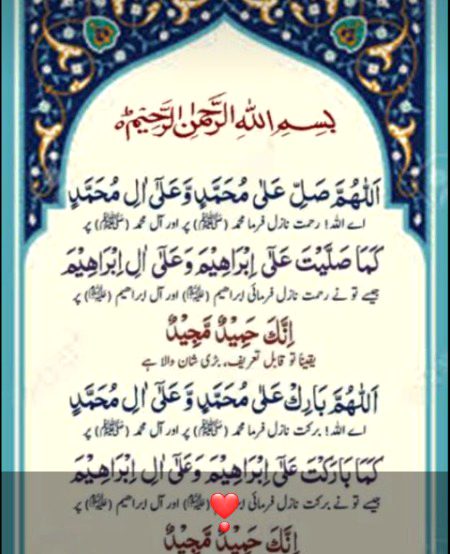 بِسْمِ اللهِ الرَّحْمٰنِ الرَّحِيْمِ
اَللّٰهُمَّ صَلِّ عَلٰى مُحَمَّدٍ وَّعَلٰٓى اٰلِ مُحَمَّدٍ
اے اللہ! رحمت نازل فرما محمد (ﷺ) پر اور آل محمد (ﷺ) پر
كَمَا صَلَّيْتَ عَلٰٓى اِبْرَاهِيْمَ وَعَلٰٓى اٰلِ اِبْرَاهِيْمَ
جیسے تو نے رحمت نازل فرمائی ابراھیم (علیہ السلام) اور آل ابراھیم (علیہ السلام) پر
اِنَّكَ حَمِيْدٌ مَّجِيْدٌ
یقیناً تو قابل تعریف، بڑی شان والا ہے
اَللّٰهُمَّ بَارِكْ عَلٰى مُحَمَّدٍ وَّعَلٰٓى اٰلِ مُحَمَّدٍ
اے اللہ! برکت نازل فرما محمد (ﷺ) پر اور آل محمد (ﷺ) پر
كَمَا بَارَكْتَ عَلٰٓى اِبْرَاهِيْمَ وَعَلٰٓى اٰلِ اِبْرَاهِيْمَ
جیسے تو نے برکت نازل فرمائی اور آل ابراھیم (علیہ السلام) پر
اِنَّكَ حَمِيْدٌ مَّجِيْدٌ